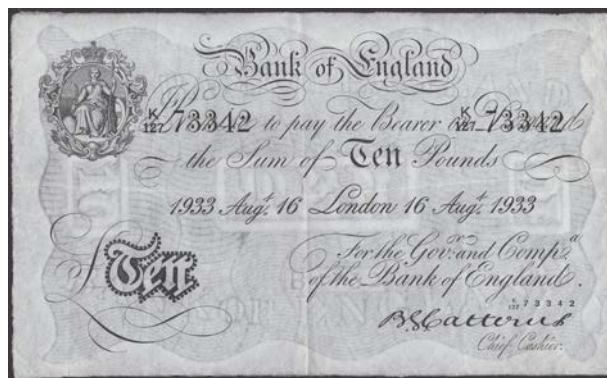 Bank of England
K/127 73342 K/127 73342
I Promise to pay the Bearer on Demand
the Sum of Ten Pounds
1933 Augt. 16 London 16 Augt. 1933
For the Govr. and Compa.
of the Bank of England.
£Ten
K/127 73342
B G Catterns
Chief Cashier.